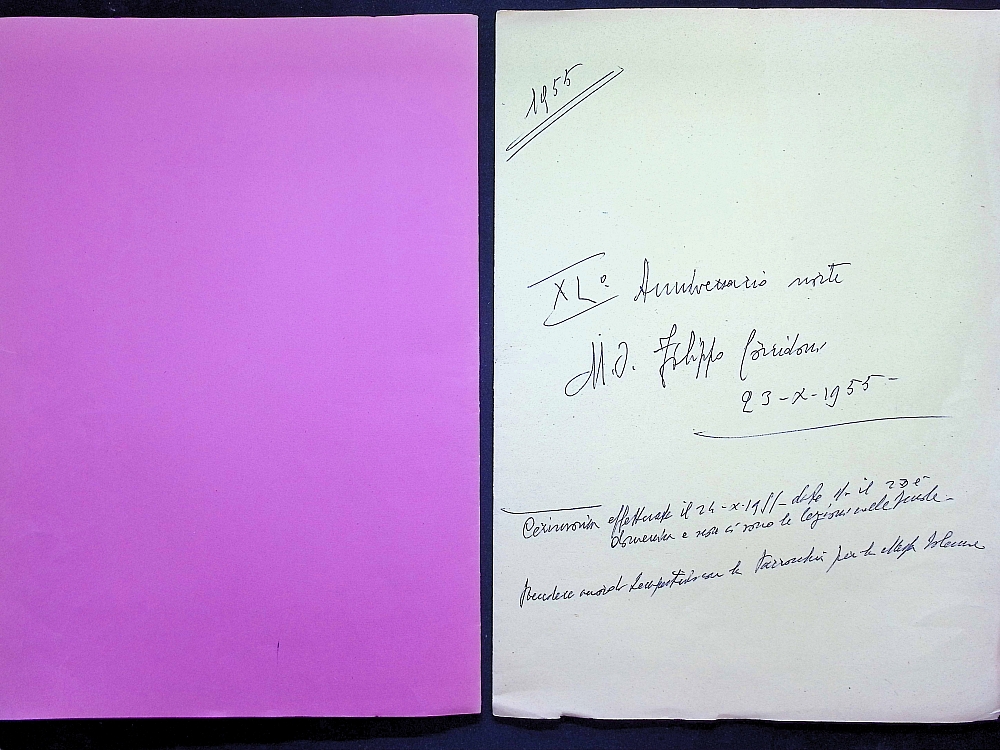 1955
XL° Anniversario morte
M.O. Filippo Corridoni
23-X-1955-
Cerimonia effettuata il 24-X-1955 dato che il 23 è
domenica e non ci sono le lezioni nelle scuole-
Prendere accordi con la Parrocchia per la Messa Solenne